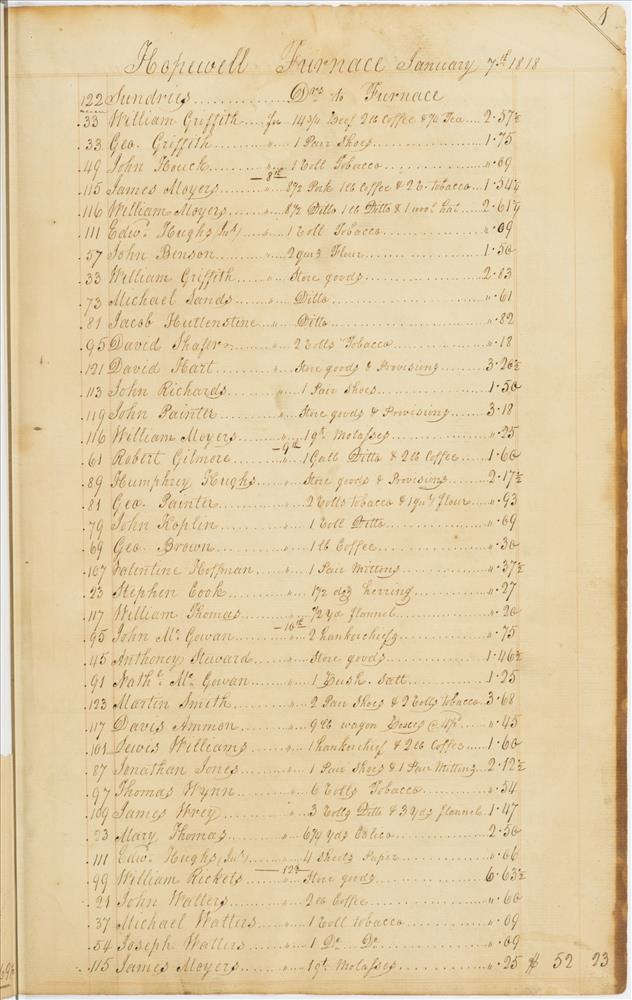 1
Hopewell Furnace January 7th 1818
122 Sundries Drs to Furnace
33 William Griffith for 14 3/4 Beef 2 lb Coffee & 1/4 Tea 2.57½
33 Geo. Griffith " 1 Pair Shoes 1.75
49 John Houck " 1 Roll Tobacco ".09
8th
115 James Moyers " 8½ Pork 1 lb Coffee & 2 R. tobacco 1.34¼
116 William Moyers " 8½ Ditto 1 lb Ditto & 1 wool hat 2.61¼
111 Edwd. Hughs (Jur) " 1 Roll Tobacco ".09
57 John Benson " 2 qurs Flour 1.50
33 William Griffith " Store goods 2.83
73 Michael Sands " Ditto ".61
81 Jacob Huttenstine " Ditto ".82
95 David Shafer " 2 Rolls Tobacco ".18
121 David Hart " Store goods & Provisions 3.20½
113 John Richards " 1 Pair Shoes 1.50
119 John Painter " Store goods & Provisions 3.18
116 William Moyers " 1 qt. Molasses ".25
9th
61 Robert Gilmore " 1 Gall Ditto & 2 lb Coffee 1.60
89 Humphrey Hughs " Store goods & Provisions 2.17½
81 Geo. Painter " 2 Rolls tobacco & 1 qur flour ".93
79 John Koplin " 1 Roll Ditto ".09
69 Geo. Brown " 1 lb Coffee ".30
107 Valentine Hoffman " 1 Pair Mittins ".37½
23 Stephen Cook " 1½ doz herring ".27
117 William Thomas " ½ yd flannel ".20
10th
95 John Mc. Gowan " 2 hankerchiefs ".75
45 Anthoney Steward " Store goods 1.46½
91 Nathl. Mc. Gowan " 1 Bush. Salt 1.25
123 Martin Smith " 2 Pair Shoes & 2 Rolls tobacco 3.68
117 Davis Ammon " 9 lb wagon Boxes ".45
101 Lewis Williams " 1 hankerchief & 2 lb Coffee 1.60
87 Jonathan Jones " 1 Pair Shoes & 1 Pair Mittins 2.12½
97 Thomas Wynn " 6 Rolls Tobacco ".54
109 James Wrey " 3 Rolls Ditto & 3 Yds flannel 1.47
23 Mary Thomas " 6¼ yds Calico 2.50
111 Edwd. Hughs (Jur) " 4 Sheets Paper ".06
12th
99 William Rickets " Store goods 6.63½
21 John Walters " 2 lb Coffee ".60
37 Michael Watters " 1 Roll tobacco ".09
54 Joseph Walters " 1 Do. Do. ".09
115 James Moyers " 1 qt. Molasses ".25 $ 52 23